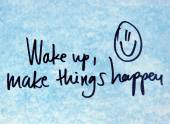 Wake up,
make things happen